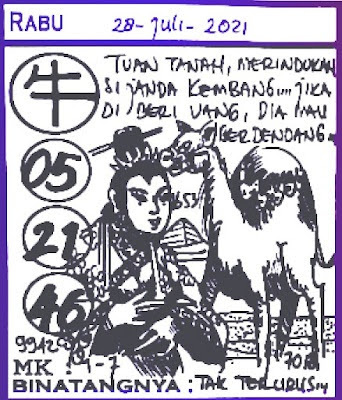 RABU 28-Juli-2021
牛
TUAN TANAH, MERINDUKAN
SI JANDA KEMBANG.... JIKA
DI BERI UANG, DIA MAU
BERDENDANG..
05
653
21
46
9942
MK : 1-7
BINATANGNYA : TAK TERURUS..,